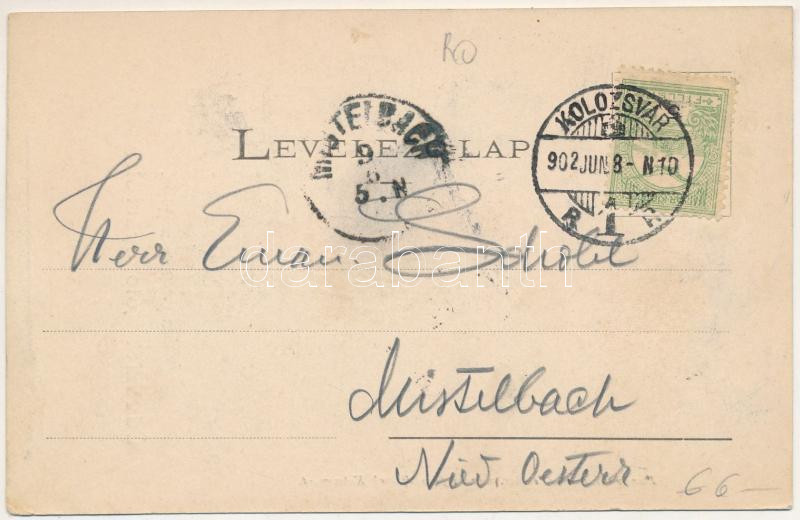 RO
KOLOZSVÁR
902 JUN. 8 - N 10
1
MISTELBACH
9
6
5. N
LEVELEZŐ-LAP
Herr Eman. Schobl
darabanth
Mistelbach
Nied. Oesterr.
66-